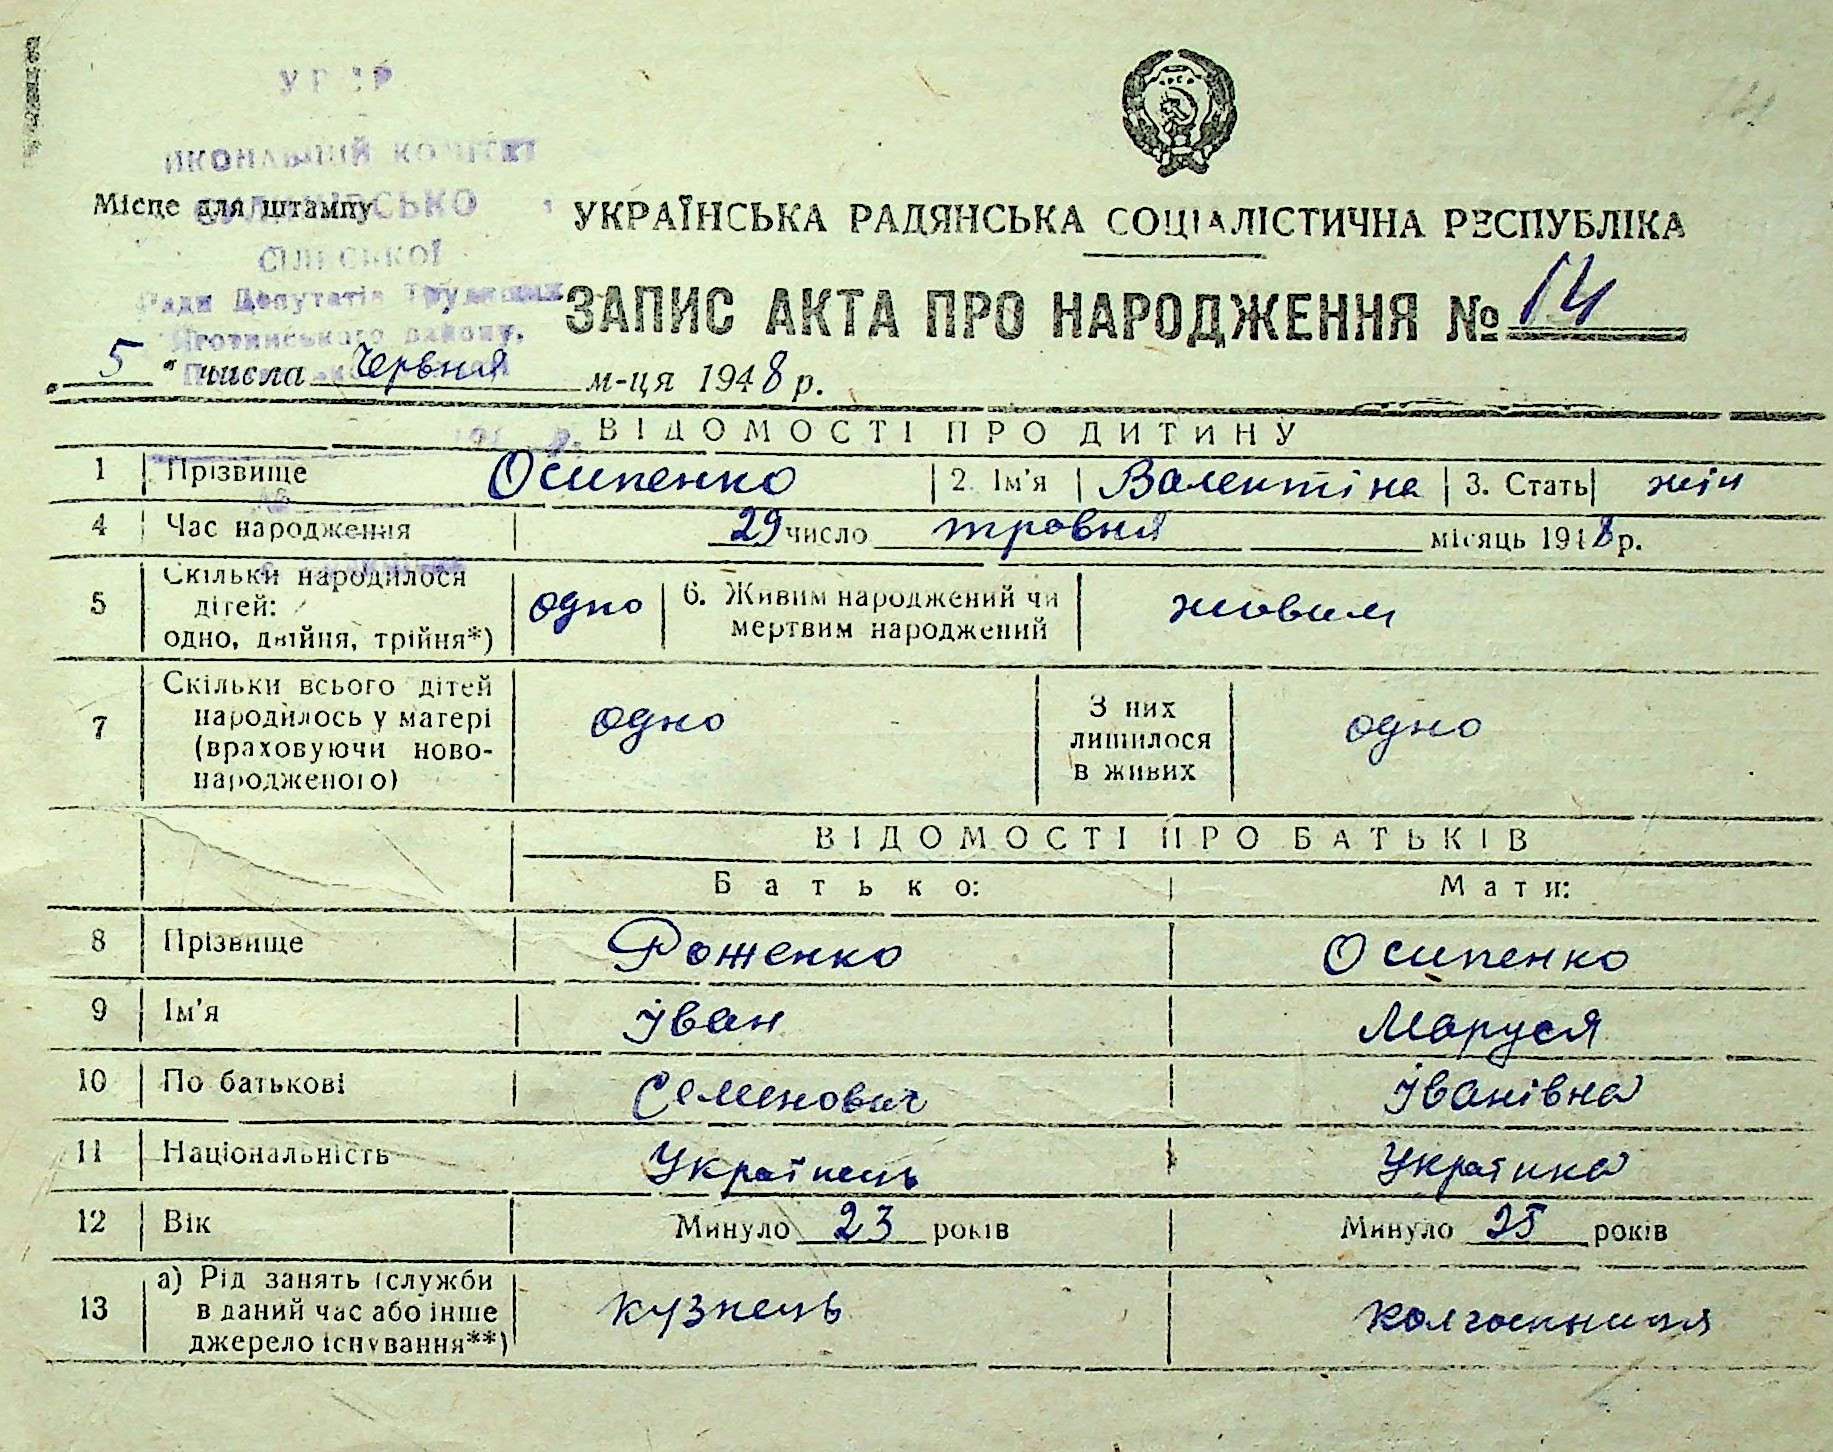 УРСР
ИКОНАВЧИЙ КОМІТЕТ
Місце для штампу
СІЛЬСЬКОЇ
Ради Депутатів Трудящих
Яготинського району,
УКРАЇНСЬКА РАДЯНСЬКА СОЦІАЛІСТИЧНА РЕСПУБЛІКА
ЗАПИС АКТА ПРО НАРОДЖЕННЯ № 14
„ 5 " числа Червня м-ця 1948 р.
ВІДОМОСТІ ПРО ДИТИНУ
1 Прізвище Осипенко 2. Ім'я Валентіна 3. Стать жін
4 Час народження 29 число травня місяць 1948 р.
5 Скільки народилося дітей: одно, двійня, трійня*) одно 6. Живим народжений чи мертвим народжений живим
7 Скільки всього дітей народилось у матері (враховуючи ново-народженого) одно З них лишилося в живих одно
ВІДОМОСТІ ПРО БАТЬКІВ
Батько: Мати:
8 Прізвище Роженко Осипенко
9 Ім'я Іван Маруся
10 По батькові Семенович Іванівна
11 Національність Українець Українка
12 Вік Минуло 23 років Минуло 25 років
13 а) Рід занять (служби в даний час або інше джерело існування**) кузнець колгоспниця